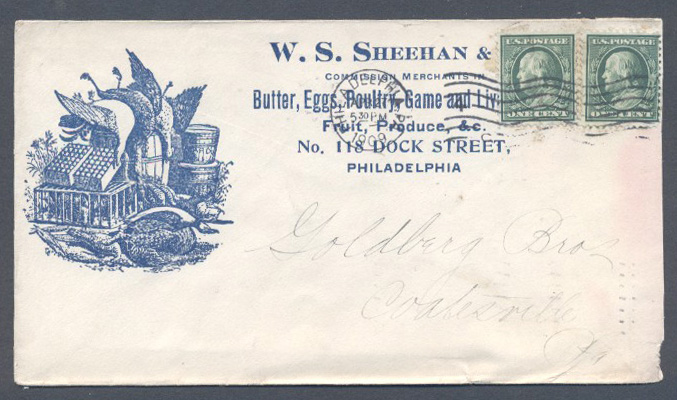 W. S. SHEEHAN &
COMMISSION MERCHANTS IN
Butter, Eggs, Poultry, Game and Liv
Fruit, Produce, &c.
No. 118 DOCK STREET,
PHILADELPHIA
U.S. POSTAGE
ONE CENT
U.S. POSTAGE
ONE CENT
PHILADELPHIA, PA.
5 30 PM
1909
Goldberg Bros
Coatesville
Pa